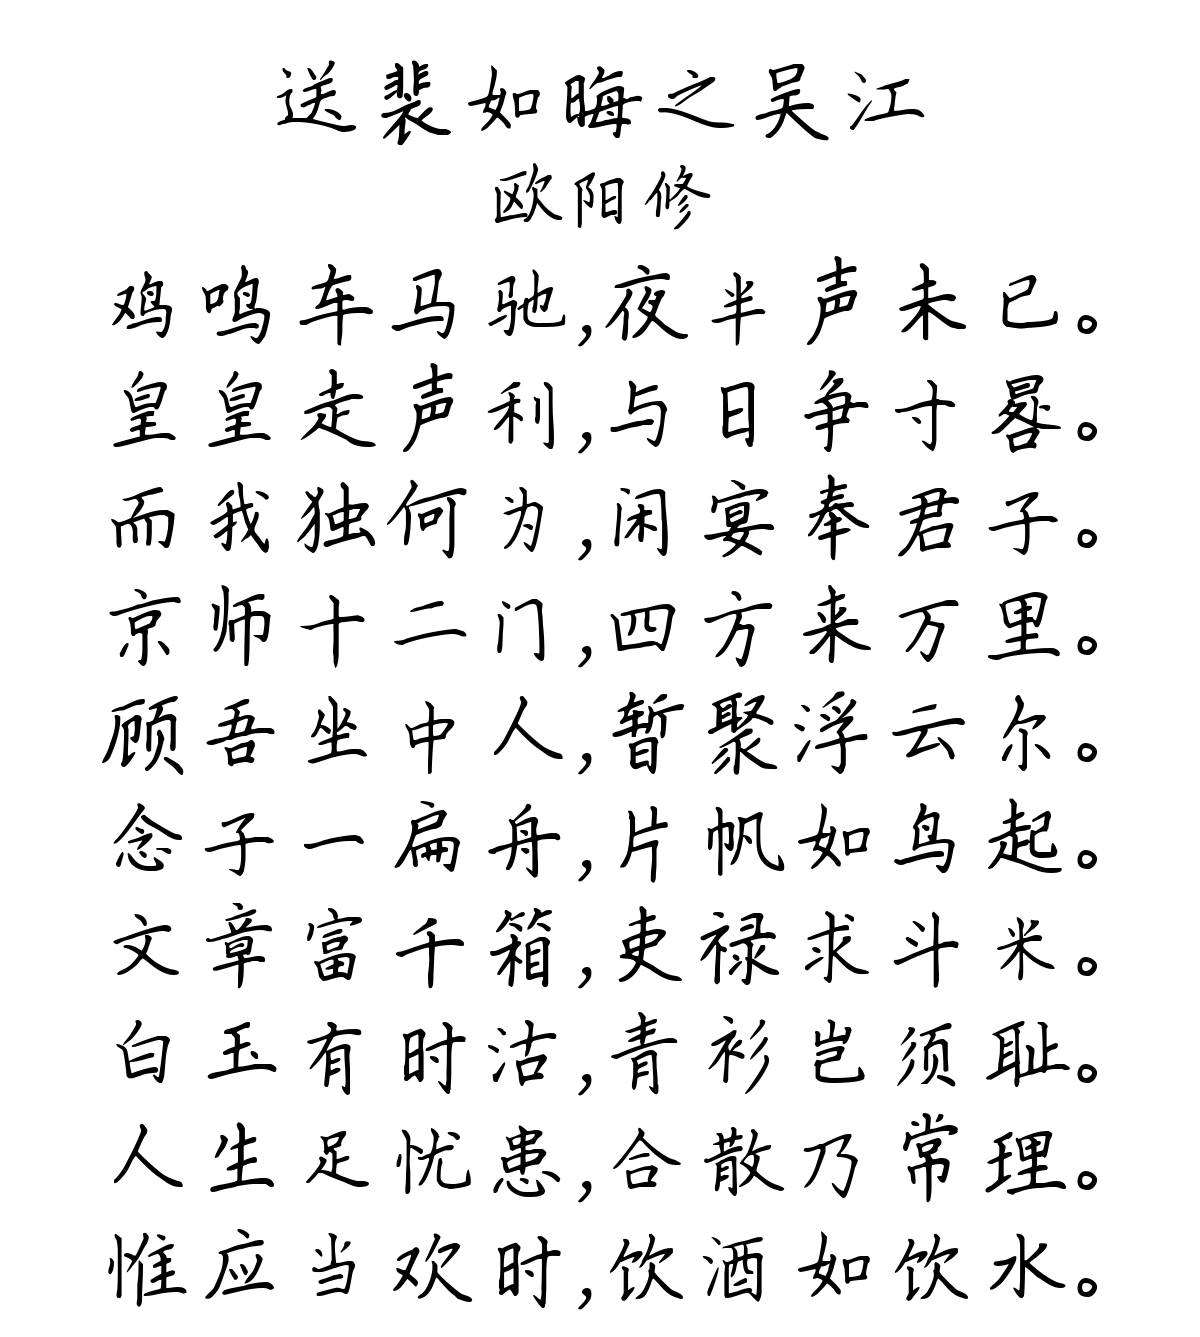 送裴如晦之吴江
欧阳修
鸡鸣车马驰,夜半声未已。
皇皇走声利,与日争寸晷。
而我独何为,闲宴奉君子。
京师十二门,四方来万里。
顾吾坐中人,暂聚浮云尔。
念子一扁舟,片帆如鸟起。
文章富千箱,吏禄求斗米。
白玉有时沽,青衫岂须耻。
人生足忧患,合散乃常理。
惟应当欢时,饮酒如饮水。